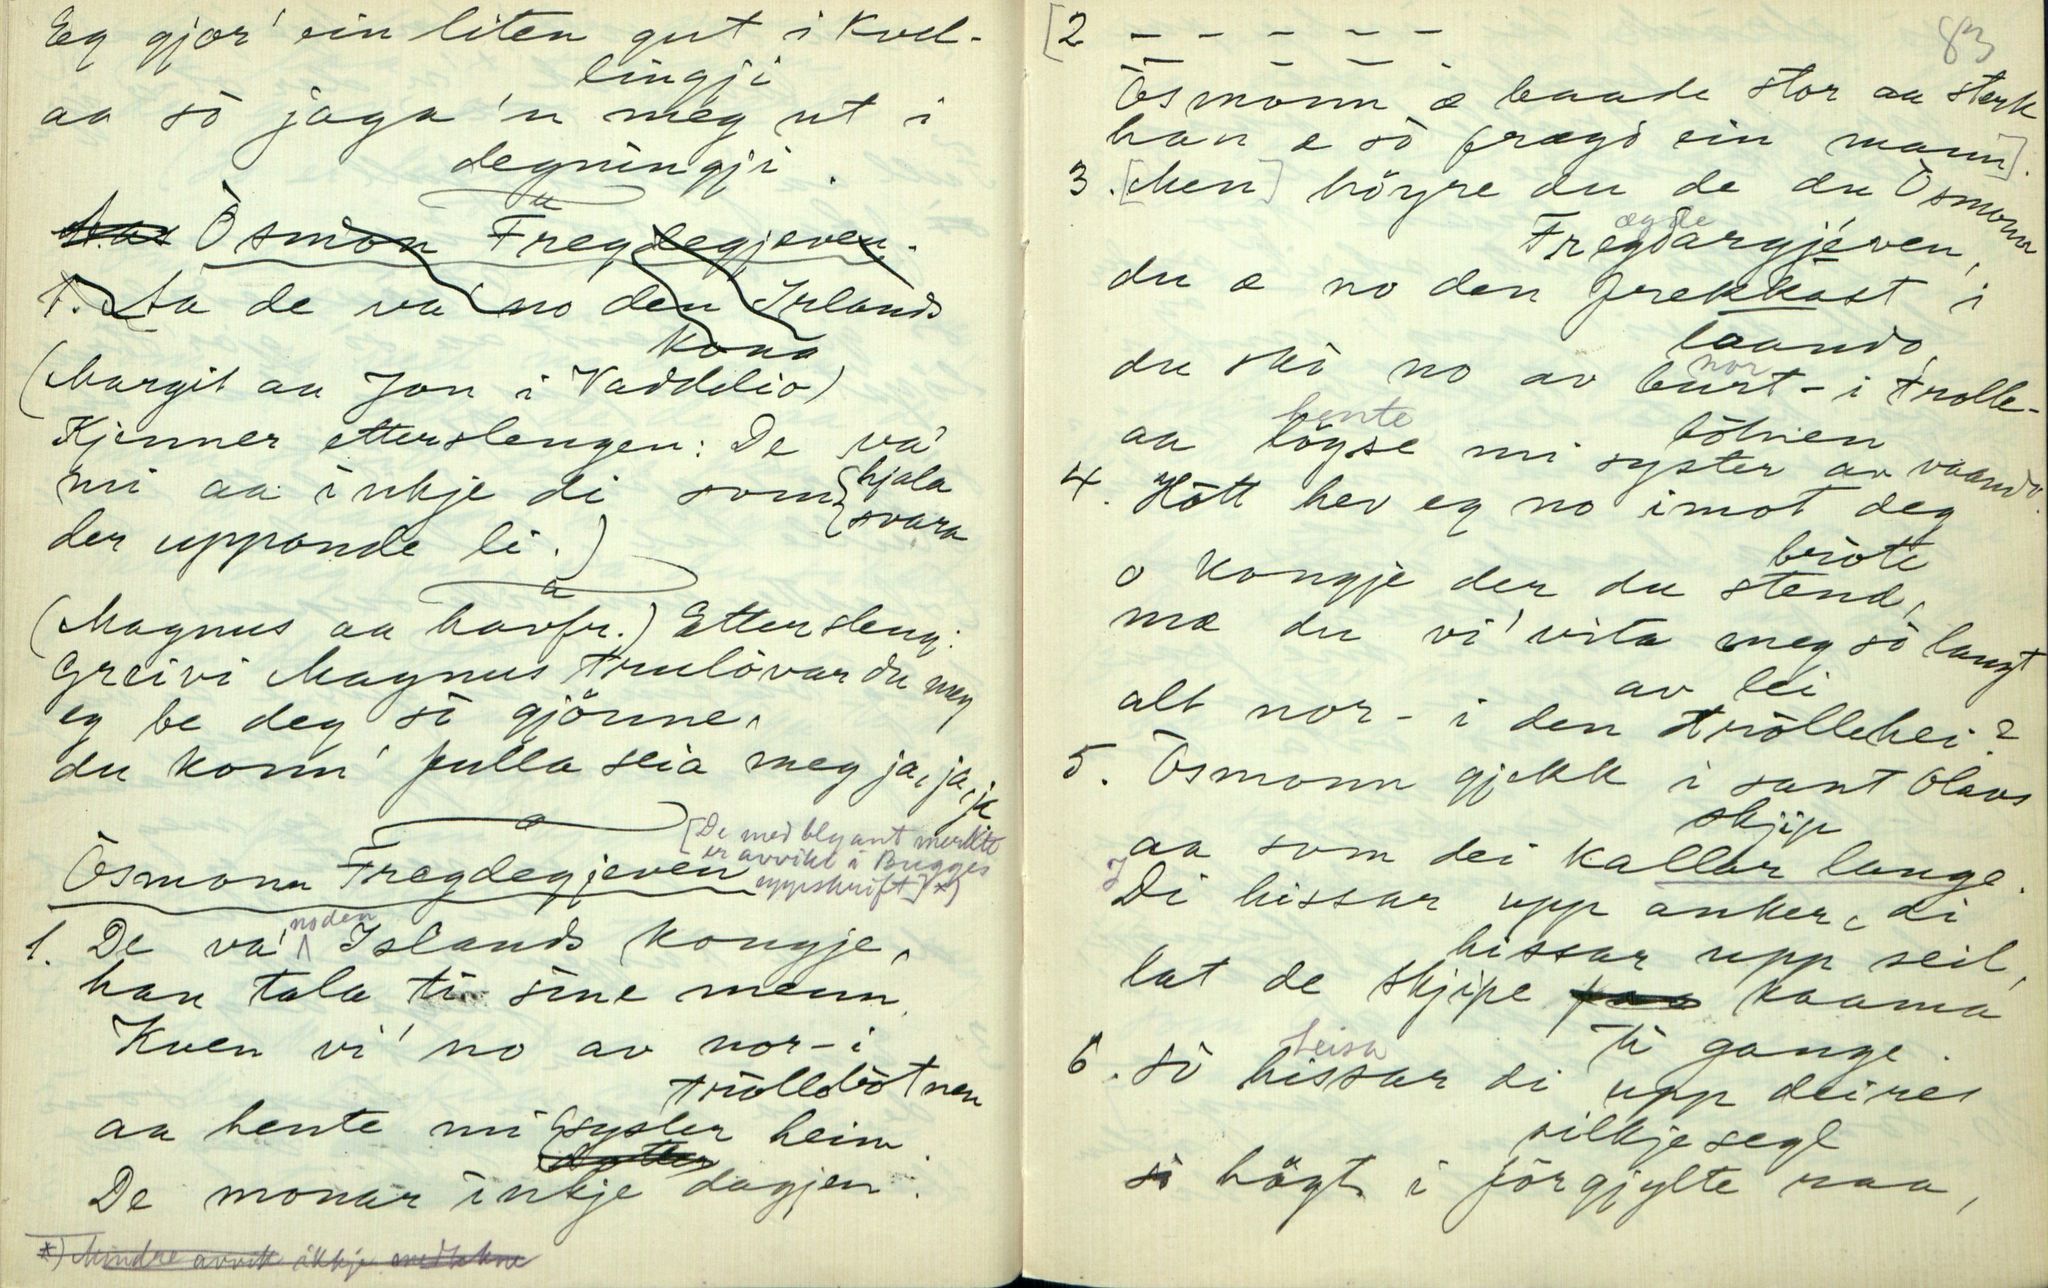 Eg gjor' ein liten gut i kvel-
lingji
aa sò jaga 'n meg ut i
degningji.
Aas Òsmon Fregdegjeven.
1. Aa de va' no den Irlands
kona
(Margit aa Jon i Vaddelio)
Kjenner etterslengen: De va'
mi aa inkje di som {hjala
{svara
der uppande li.)
(Magnus aa havfr.) Ettersleng:
Greivi Magnus trulòvar du meg
eg be deg sò gjönne,
du konn' fulla seia meg ja, ja, ja.
[De med blyant merkte
er avvikl i Bugges
uppskrift] *)
Òsmonn Fregdegjeven
1. De va' no den Islands kongje,
han tala ti sine menn.
Kven vi' no av nor-i
tròllebòtnen
aa hente mi syster heim.
dotter
De monar inkje dagjen.
*) Mindre avvik ikkje medtekne
83
[2 – – – – –
– – –
Òsmonn æ baade stor aa sterk
han æ sò frægd ein mann].
3. [Men] höyre du de du Òsmonn
ægde
Fregdargjéven,
du æ no den frekkast i
laando,
du skò no av burt- i trolle-
nor
bòtnen
aa löyse mi syster av vaando.
hente
4. Hòtt hev eg no imot deg
bròte
o kongje der du stend,
mæ du vi' vita meg sò langt
av lei
alt nor- i den tròllehei?
5. Òsmonn gjekk i sant Olavs
skjip
aa som dei kallar lange.
Di hissar upp anker, di
hissar upp seil,
lat de skjipe kaama
ti gange.
6. sò hissar di upp deires
heisa
silkjesegl
sò högt i förgjylte raa,